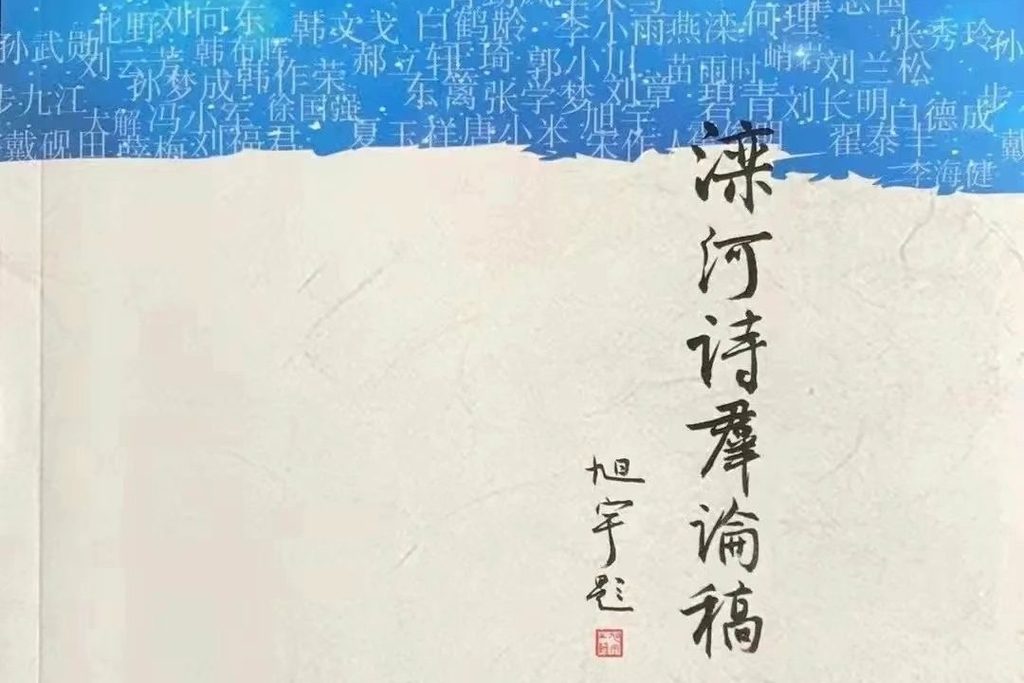 北野
刘向东
韩文戈
白鹤龄
李小雨
燕滦
何理
张秀玲
孙武勋
刘云芳
韩布晖
郝立轩
琦
郭小川
苗雨时
峭岩
刘兰松
步九江
孙梦成
韩作荣
东篱
张学梦
刘章
刘长明
白德成
大解
冯小军
徐国强
旭宇
戴砚田
薛梅
刘福君
夏玉祥
唐小米
翟泰丰
李海健
滦河诗群论稿
旭宇题